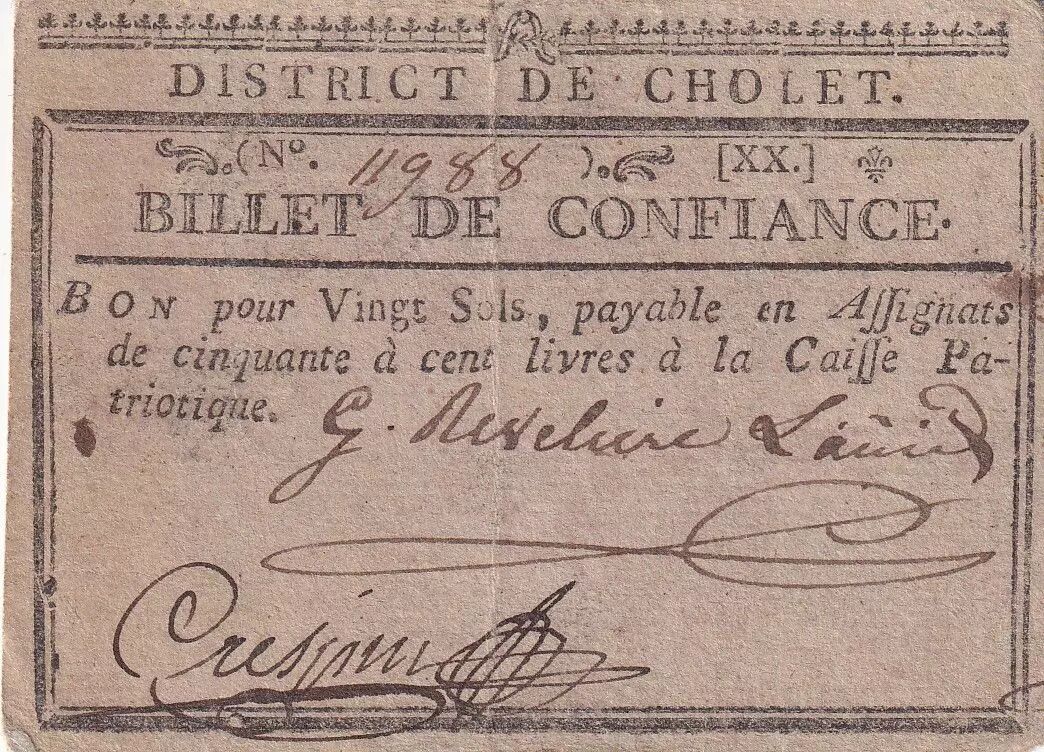 DISTRICT DE CHOLET.
(No. 11988 ). [XX.]
BILLET DE CONFIANCE.
BON pour Vingt Sols, payable en Aſſignats
de cinquante à cent livres à la Caiſſe Pa-
triotique.
G.
Crespin